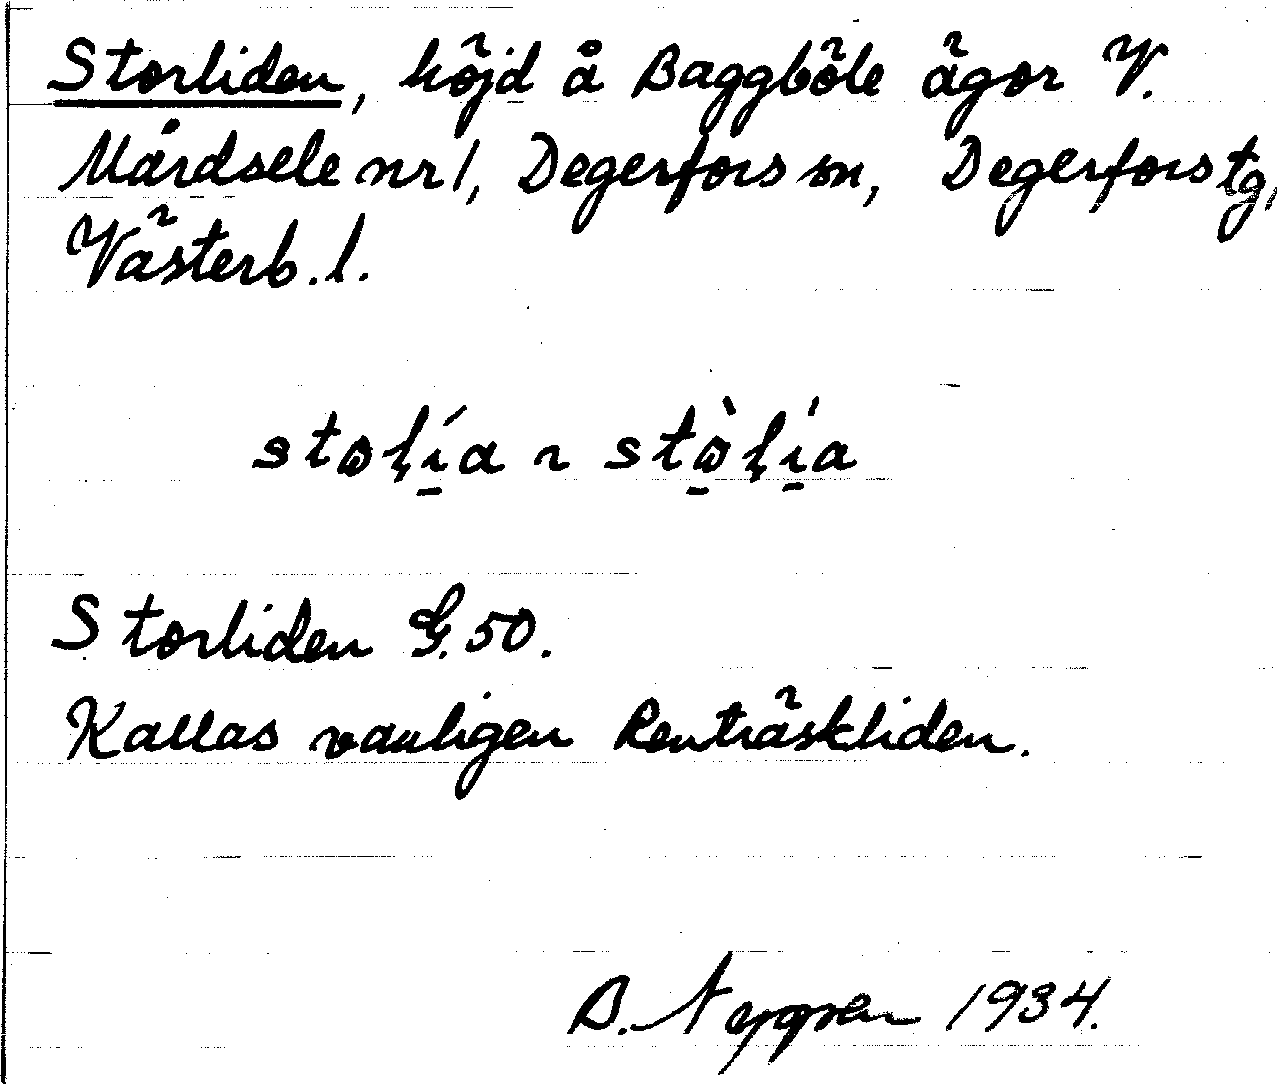 Storliden, höjd å Baggböle ägor V.
Mårdsele nr 1, Degerfors sn, Degerfors tg,
Västerb. l.
Storliden G. 50.
Kallas vanligen Renträskliden.
B. Nygren 1934.